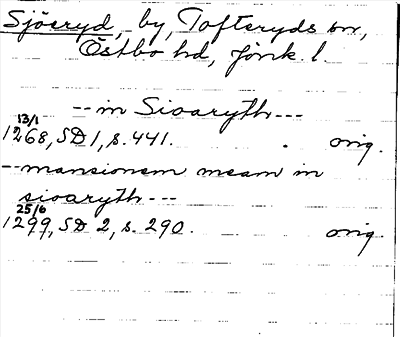 Sjöeryd, by, Tofteryds sn,
Östbo hd, Jönk. l.
-- in Sioaryth ---
13/1
1268, SD 1, s. 441. orig.
-- mansionem meam in
sioaryth ---
25/6
1299, SD 2, s. 290. orig.